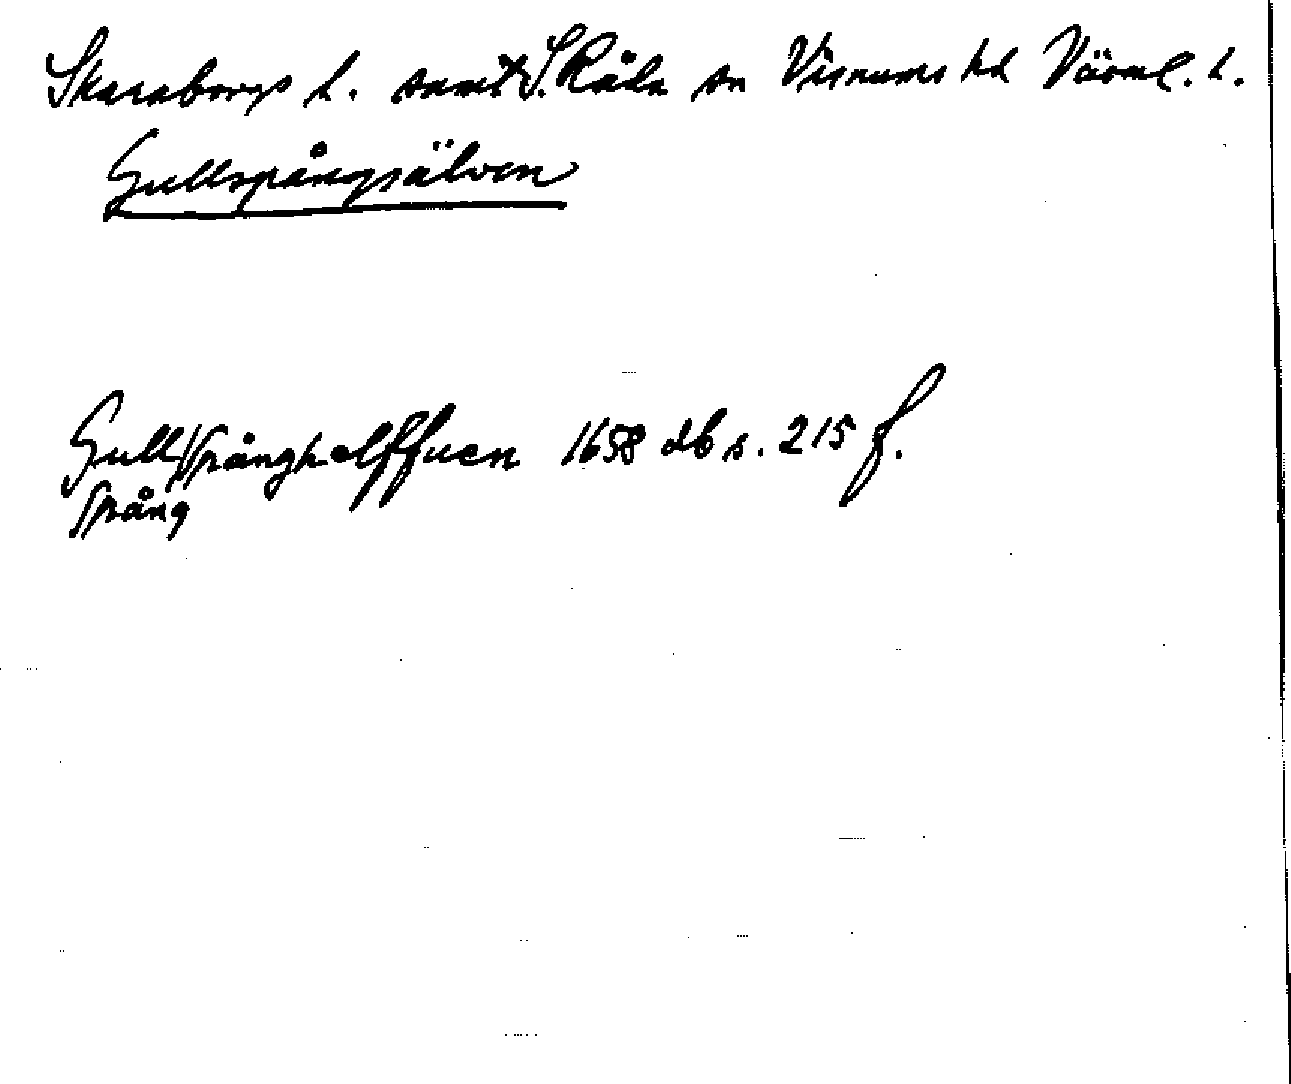 Skaraborgs l. samt S. Råda sn Visnums hd Värml. l.
Gullspångsälven
Gullsspånghelffuen 1658 db s. 215 f.
Spång